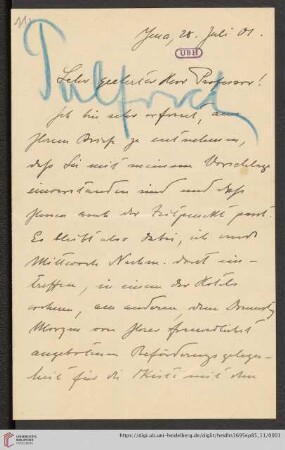 Jena, 28. Juli 01.
UBH
Pulfrich
Sehr geehrter Herr Professor!
Ich bin sehr erfreut, aus
Ihrem Brief zu entnehmen,
daß Sie mit meinem Vorschlage
einverstanden sind und daß
Ihnen auch der Zeitpunkt passt.
Es bleibt also dabei, ich werde
Mittwoch Nachm. dort ein-
treffen, in einem der Hotels
wohnen, am anderen, dem Donnerstag
Morgen von Ihrer freundlichst
angebotenen Beförderungsgelegen-
heit für die Kiste mit dem
UNIVERSITÄTS-
BIBLIOTHEK
HEIDELBERG